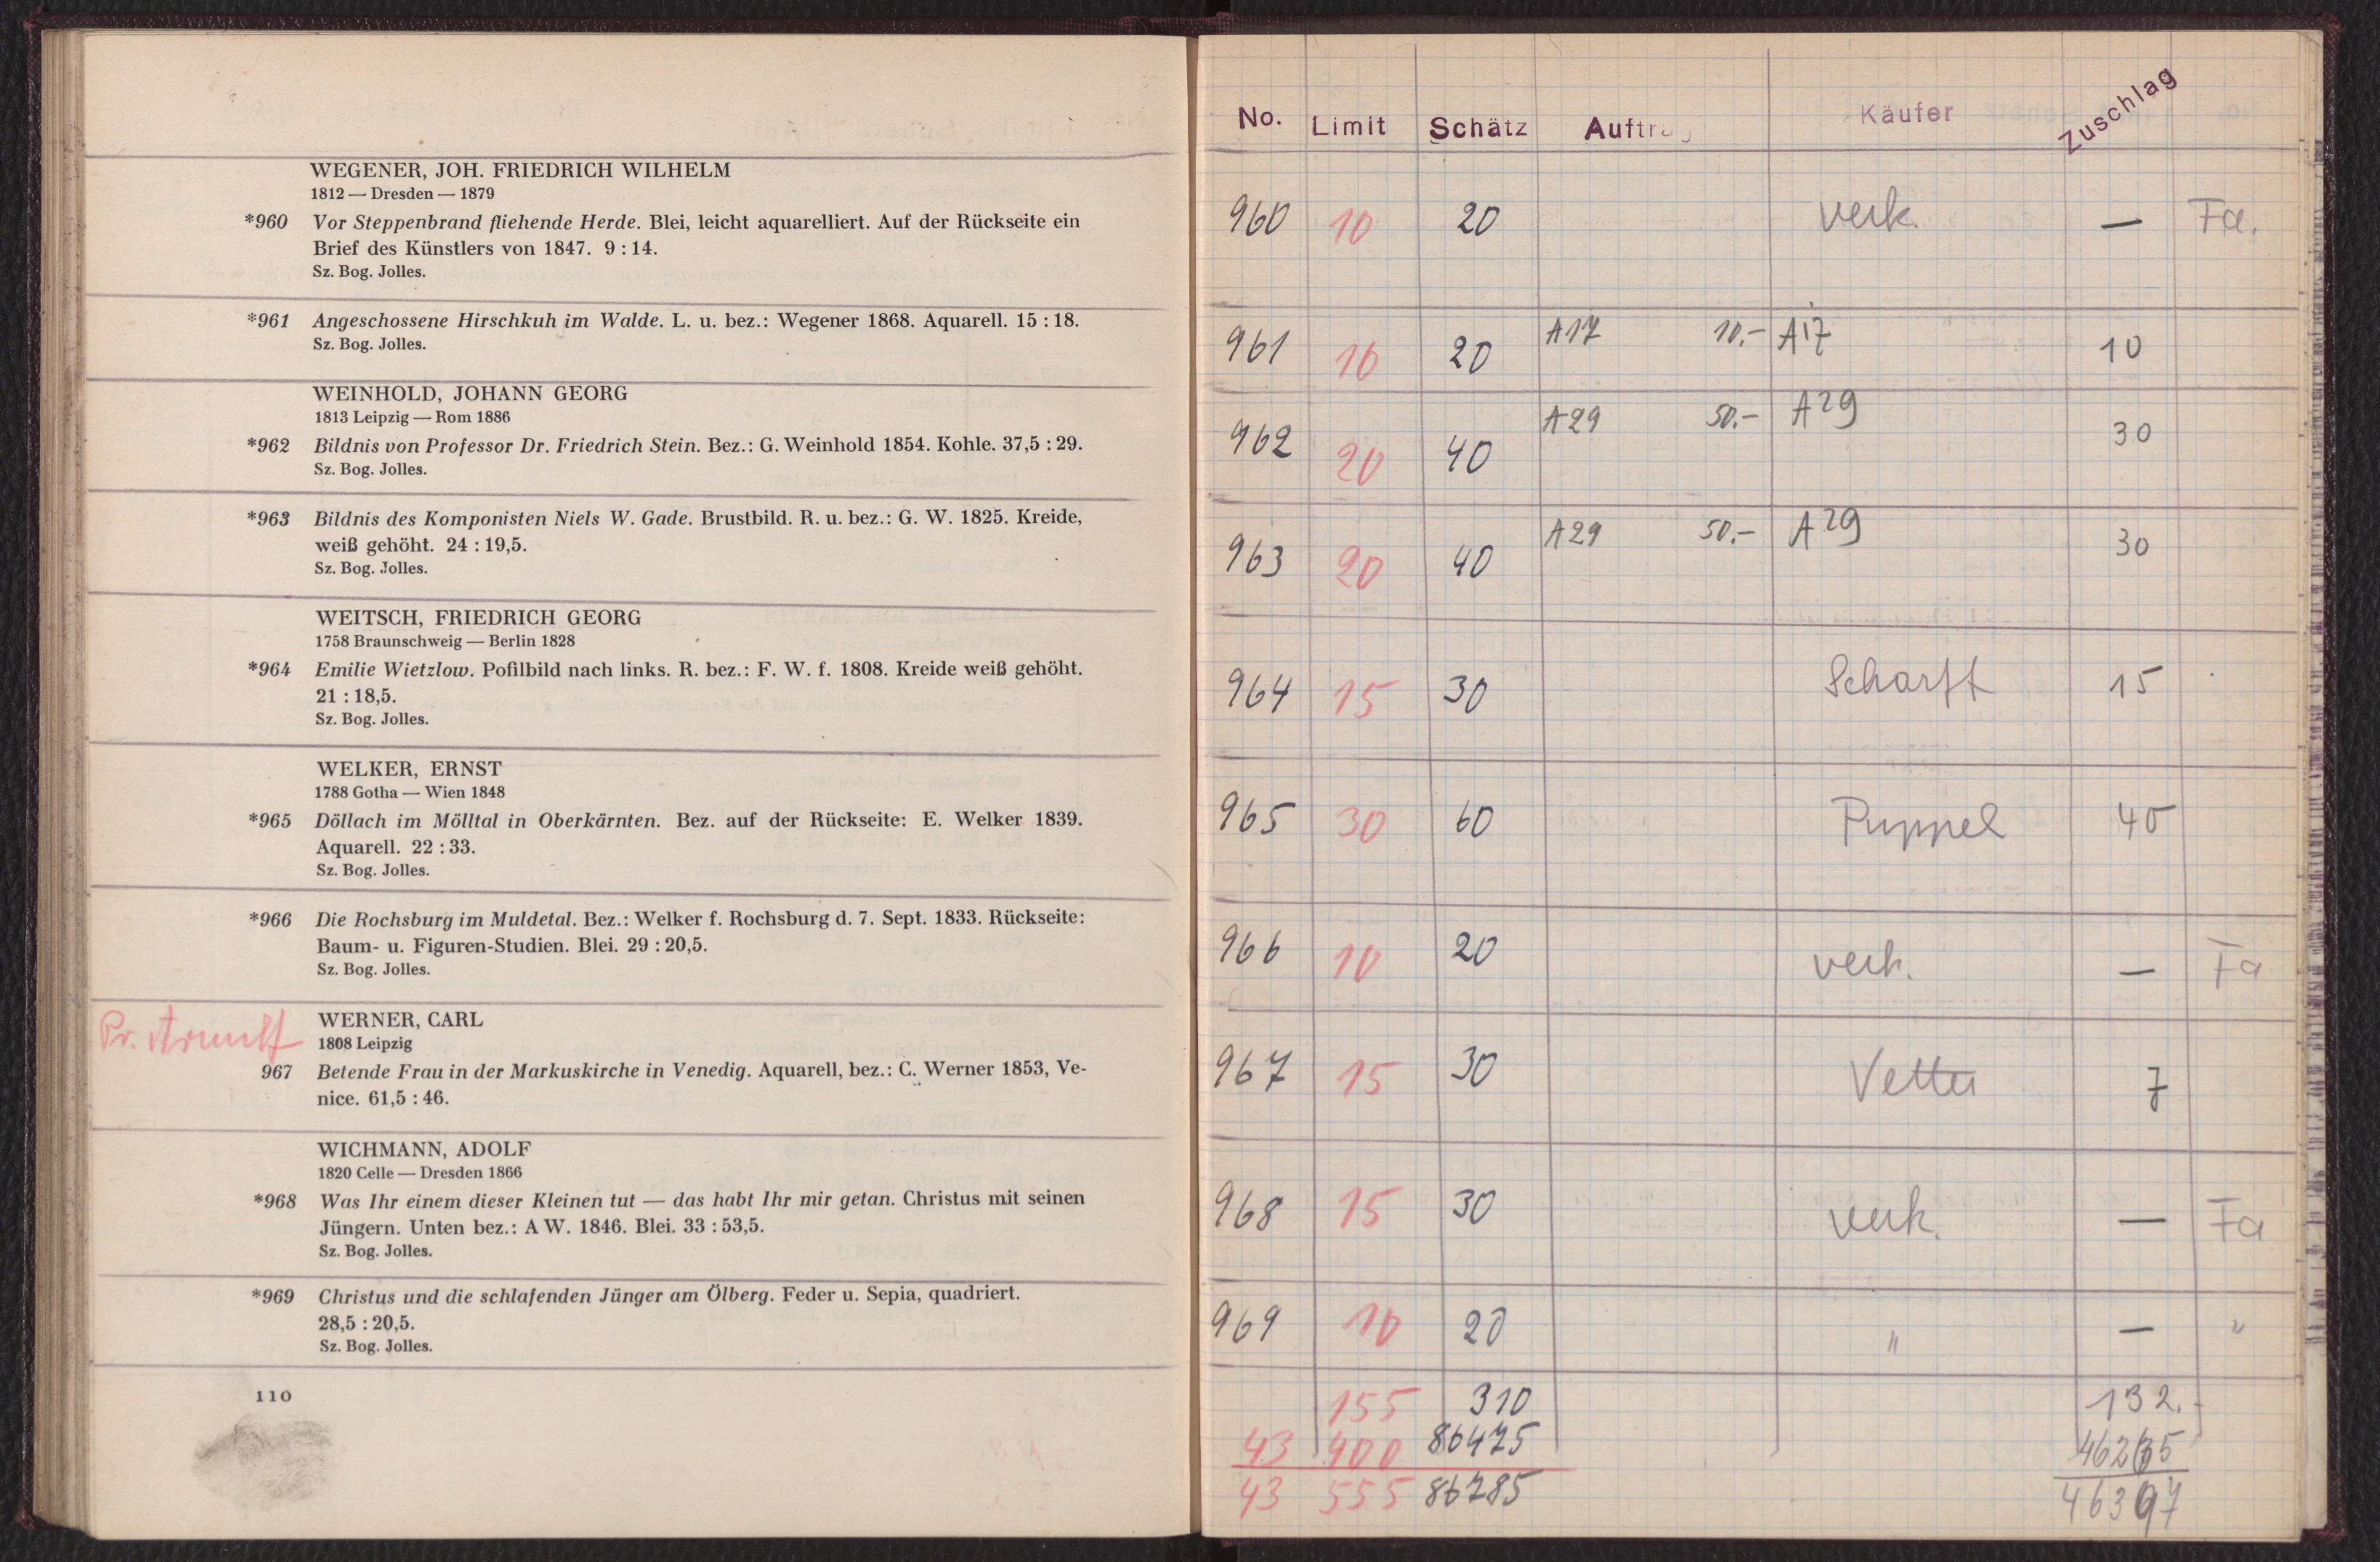 WEGENER, JOH. FRIEDRICH WILHELM
1812 — Dresden — 1879
*960 Vor Steppenbrand fliehende Herde. Blei, leicht aquarelliert. Auf der Rückseite ein
Brief des Künstlers von 1847. 9 : 14.
Sz. Bog. Jolles.
*961 Angeschossene Hirschkuh im Walde. L. u. bez.: Wegener 1868. Aquarell. 15 : 18.
Sz. Bog. Jolles.
WEINHOLD, JOHANN GEORG
1813 Leipzig — Rom 1886
*962 Bildnis von Professor Dr. Friedrich Stein. Bez.: G. Weinhold 1854. Kohle. 37,5 : 29.
Sz. Bog. Jolles.
*963 Bildnis des Komponisten Niels W. Gade. Brustbild. R. u. bez.: G. W. 1825. Kreide,
weiß gehöht. 24 : 19,5.
Sz. Bog. Jolles.
WEITSCH, FRIEDRICH GEORG
1758 Braunschweig — Berlin 1828
*964 Emilie Wietzlow. Pofilbild nach links. R. bez.: F. W. f. 1808. Kreide weiß gehöht.
21 : 18,5.
Sz. Bog. Jolles.
WELKER, ERNST
1788 Gotha — Wien 1848
*965 Döllach im Mölltal in Oberkärnten. Bez. auf der Rückseite: E. Welker 1839.
Aquarell. 22 : 33.
Sz. Bog. Jolles.
*966 Die Rochsburg im Muldetal. Bez.: Welker f. Rochsburg d. 7. Sept. 1833. Rückseite:
Baum- u. Figuren-Studien. Blei. 29 : 20,5.
Sz. Bog. Jolles.
Pr.
WERNER, CARL
1808 Leipzig
967 Betende Frau in der Markuskirche in Venedig. Aquarell, bez.: C. Werner 1853, Ve-
nice. 61,5 : 46.
WICHMANN, ADOLF
1820 Celle — Dresden 1866
*968 Was Ihr einem dieser Kleinen tut — das habt Ihr mir getan. Christus mit seinen
Jüngern. Unten bez.: A W. 1846. Blei. 33 : 53,5.
Sz. Bog. Jolles.
*969 Christus und die schlafenden Jünger am Ölberg. Feder u. Sepia, quadriert.
28,5 : 20,5.
Sz. Bog. Jolles.
110
No. Limit Schätz Auftrag Käufer Zuschlag
960 10 20 verk. — Fa.
961 10 20 A17 10.- A17 10
962 20 40 A29 50.- A29 30
963 20 40 A29 50.- A29 30
964 15 30 Scharff 15
965 30 60 Puppel 40
966 10 20 verk. — Fa
967 15 30 Vetter 7
968 15 30 verk. — Fa
969 10 20 " — "
155 310 132.-
43 400 86475 46265
43 555 86785 46397